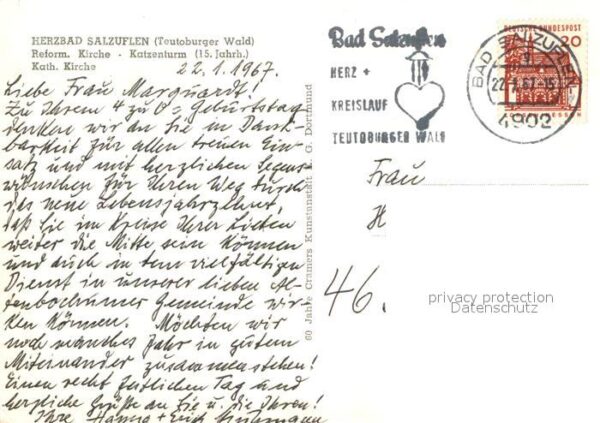 HERZBAD SALZUFLEN (Teutoburger Wald)
Reform. Kirche - Katzenturm (15. Jahrh.)
Kath. Kirche
22.1.1967.
Liebe Frau Marquardt!
Zu Ihrem 4 zu 0 = Geburtstag
denken wir an Sie in Dank-
barkeit für allen treuen Ein-
satz und mit herzlichen Segens-
wünschen für Ihren Weg durch
das neue Lebensjahrzehnt,
daß Sie im Kreise Ihrer Lieben
weiter die Mitte sein können
und auch in dem vielfältigen
Dienst in unserer lieben Al-
tenbochumer Gemeinde wir-
ken können. Möchten wir
noch manches Jahr in gutem
Miteinander zusammenstehen!
Einen recht festlichen Tag und
herzliche Grüße an Sie u. die Ihren!
Ihre Hanna + Erich
60 Jahre Cramers Kunstanstalt K. G. Dortmund
Bad Salzuflen
HERZ +
KREISLAUF
TEUTOBURGER WALD
BAD SALZUFLEN
22.1.67
4902
DEUTSCHE BUNDESPOST
20
Frau
H
46.
privacy protection
Datenschutz